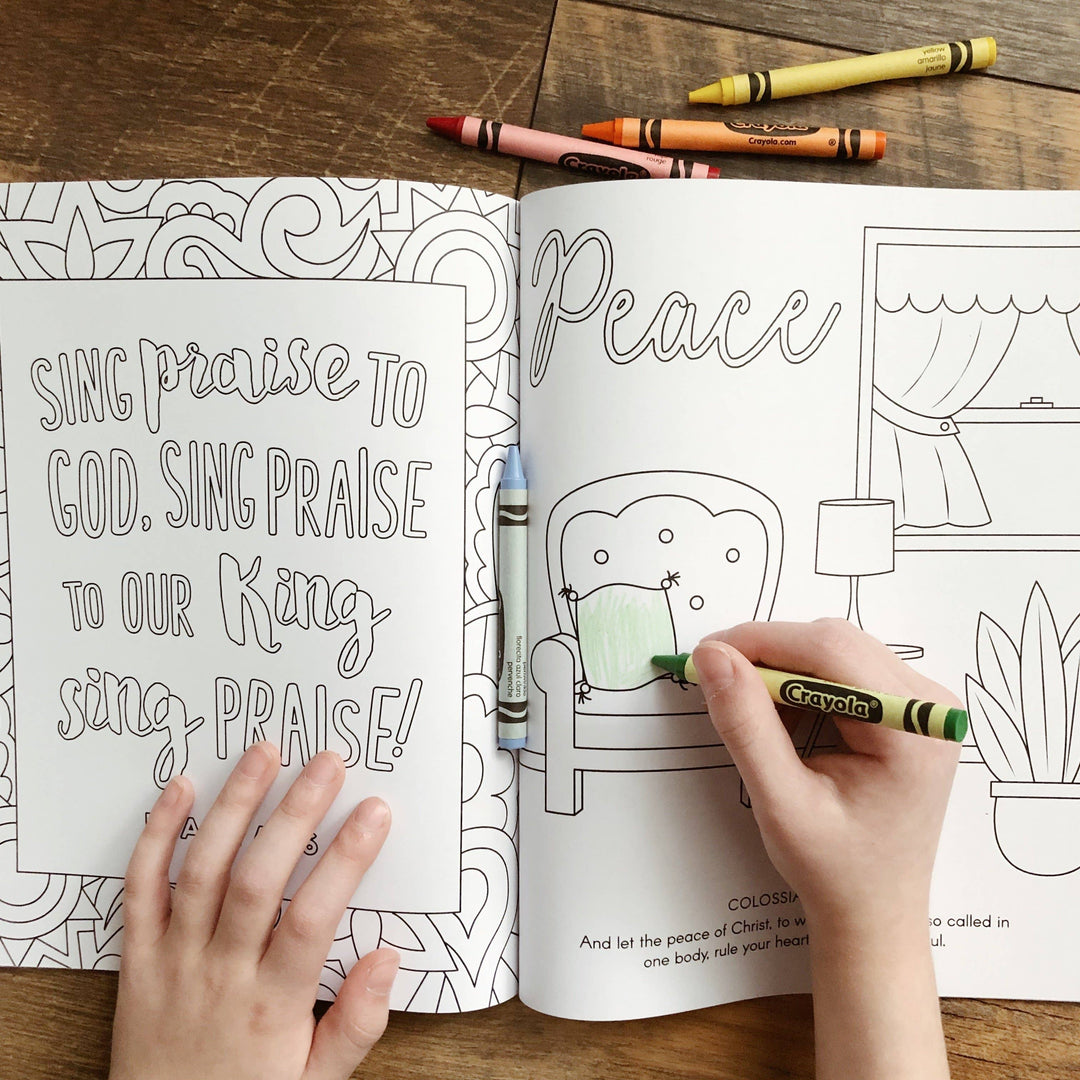 yellow
amarillo
jaune
Crayola
Crayola.com
®
rouge
Crayola
SING praise TO
GOD, SING PRAISE
TO OUR King
sing PRAISE!
6
florecita azul claro
pervenche
Peace
Crayola
And let the peace of Christ, to so called in
one body, rule your